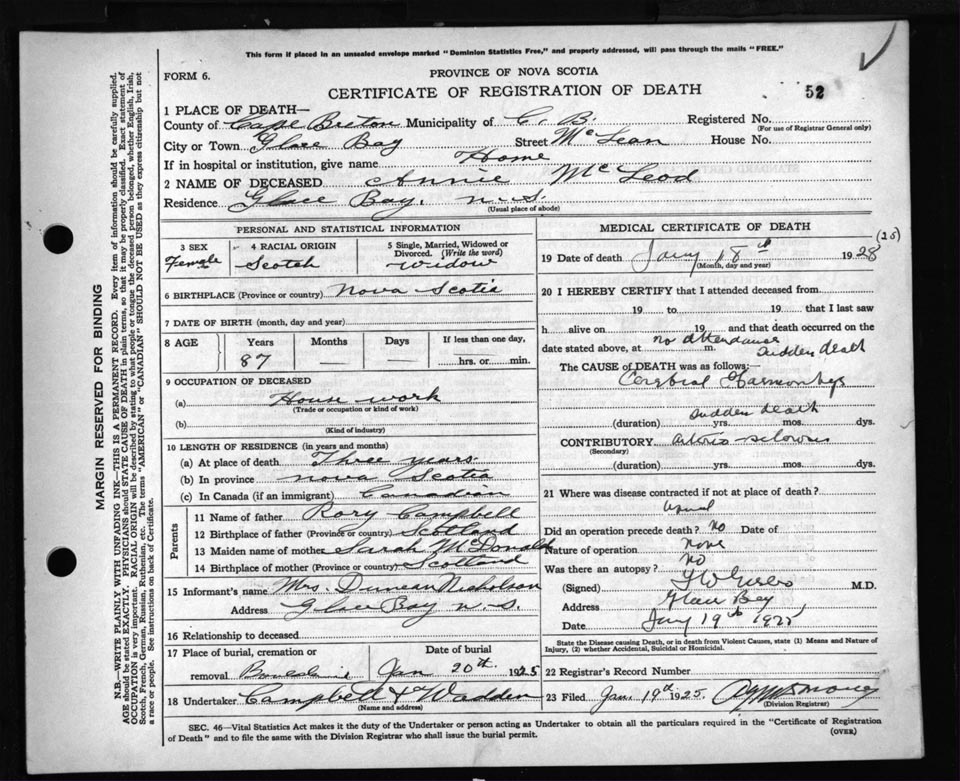 This form if placed in an unsealed envelope marked "Dominion Statistics Free," and properly addressed, will pass through the mails "FREE."
FORM 6.
PROVINCE OF NOVA SCOTIA
CERTIFICATE OF REGISTRATION OF DEATH
52
1 PLACE OF DEATH—
County of Cape Breton Municipality of C. B. Registered No.
(For use of Registrar General only)
City or Town Glace Bay Street McLean House No.
If in hospital or institution, give name Home
2 NAME OF DECEASED Annie McLeod
Residence Glace Bay, N.S.
(Usual place of abode)
PERSONAL AND STATISTICAL INFORMATION
3 SEX Female
4 RACIAL ORIGIN Scotch
5 Single, Married, Widowed or Divorced. (Write the word) Widow
6 BIRTHPLACE (Province or country) Nova Scotia
7 DATE OF BIRTH (month, day and year)
8 AGE Years Months Days If less than one day,
87 — hrs. or min.
9 OCCUPATION OF DECEASED
(a) House work
(Trade or occupation or kind of work)
(b)
(Kind of industry)
10 LENGTH OF RESIDENCE (in years and months)
(a) At place of death Three years
(b) In province Nova Scotia
(c) In Canada (if an immigrant) Canadian
Parents
11 Name of father Rory Campbell
12 Birthplace of father (Province or country) Scotland
13 Maiden name of mother Sarah McDonald
14 Birthplace of mother (Province or country) Scotland
15 Informant's name Mrs. Duncan Nicholson
Address Glace Bay N.S.
16 Relationship to deceased
17 Place of burial, cremation or removal Date of burial
Jan 20th 1925
18 Undertaker Campbell & Wadden
(Name and address)
MEDICAL CERTIFICATE OF DEATH
19 Date of death Jany 18th 1928 (25)
(Month, day and year)
20 I HEREBY CERTIFY that I attended deceased from
19 to 19 that I last saw
h alive on 19 and that death occurred on the
date stated above, at no attendance m. Sudden death
The CAUSE of DEATH was as follows:—
Cerebral
Sudden death
(duration) yrs. mos. dys.
CONTRIBUTORY
(Secondary)
(duration) yrs. mos. dys.
21 Where was disease contracted if not at place of death?
Did an operation precede death? No Date of
Nature of operation None
Was there an autopsy? No
(Signed) M.D.
Address Glace Bay
Date Jany 19th 1925
State the Disease causing Death, or in death from Violent Causes, state (1) Means and Nature of Injury, (2) whether Accidental, Suicidal or Homicidal.
22 Registrar's Record Number
23 Filed Jan. 19th 1925.
(Division Registrar)
SEC. 46—Vital Statistics Act makes it the duty of the Undertaker or person acting as Undertaker to obtain all the particulars required in the "Certificate of Registration
of Death" and to file the same with the Division Registrar who shall issue the burial permit.
(OVER)
MARGIN RESERVED FOR BINDING
N.B.—WRITE PLAINLY WITH UNFADING INK—THIS IS A PERMANENT RECORD. Every item of information should be carefully supplied.
AGE should be stated EXACTLY. PHYSICIANS should STATE CAUSE OF DEATH in plain terms, so that it may be properly classified. Exact statement of
OCCUPATION is very important. RACIAL ORIGIN will be described by stating to what people or tongue the deceased person belonged, whether English, Irish,
Scotch, French, German, Russian, Ruthenian, etc. The terms "AMERICAN" or "CANADIAN" SHOULD NOT BE USED as they express citizenship but not
a race or people. See instructions on back of Certificate.